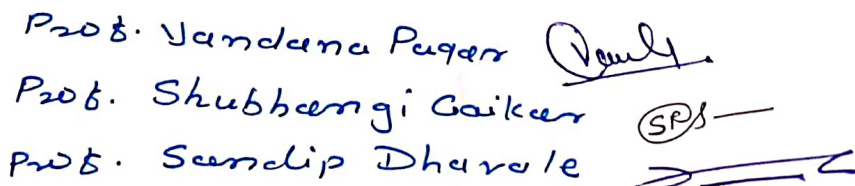 Prof. Vandana Pagar
Prof. Shubhangi Gaikar SPS
Prof. Sandip Dhavale